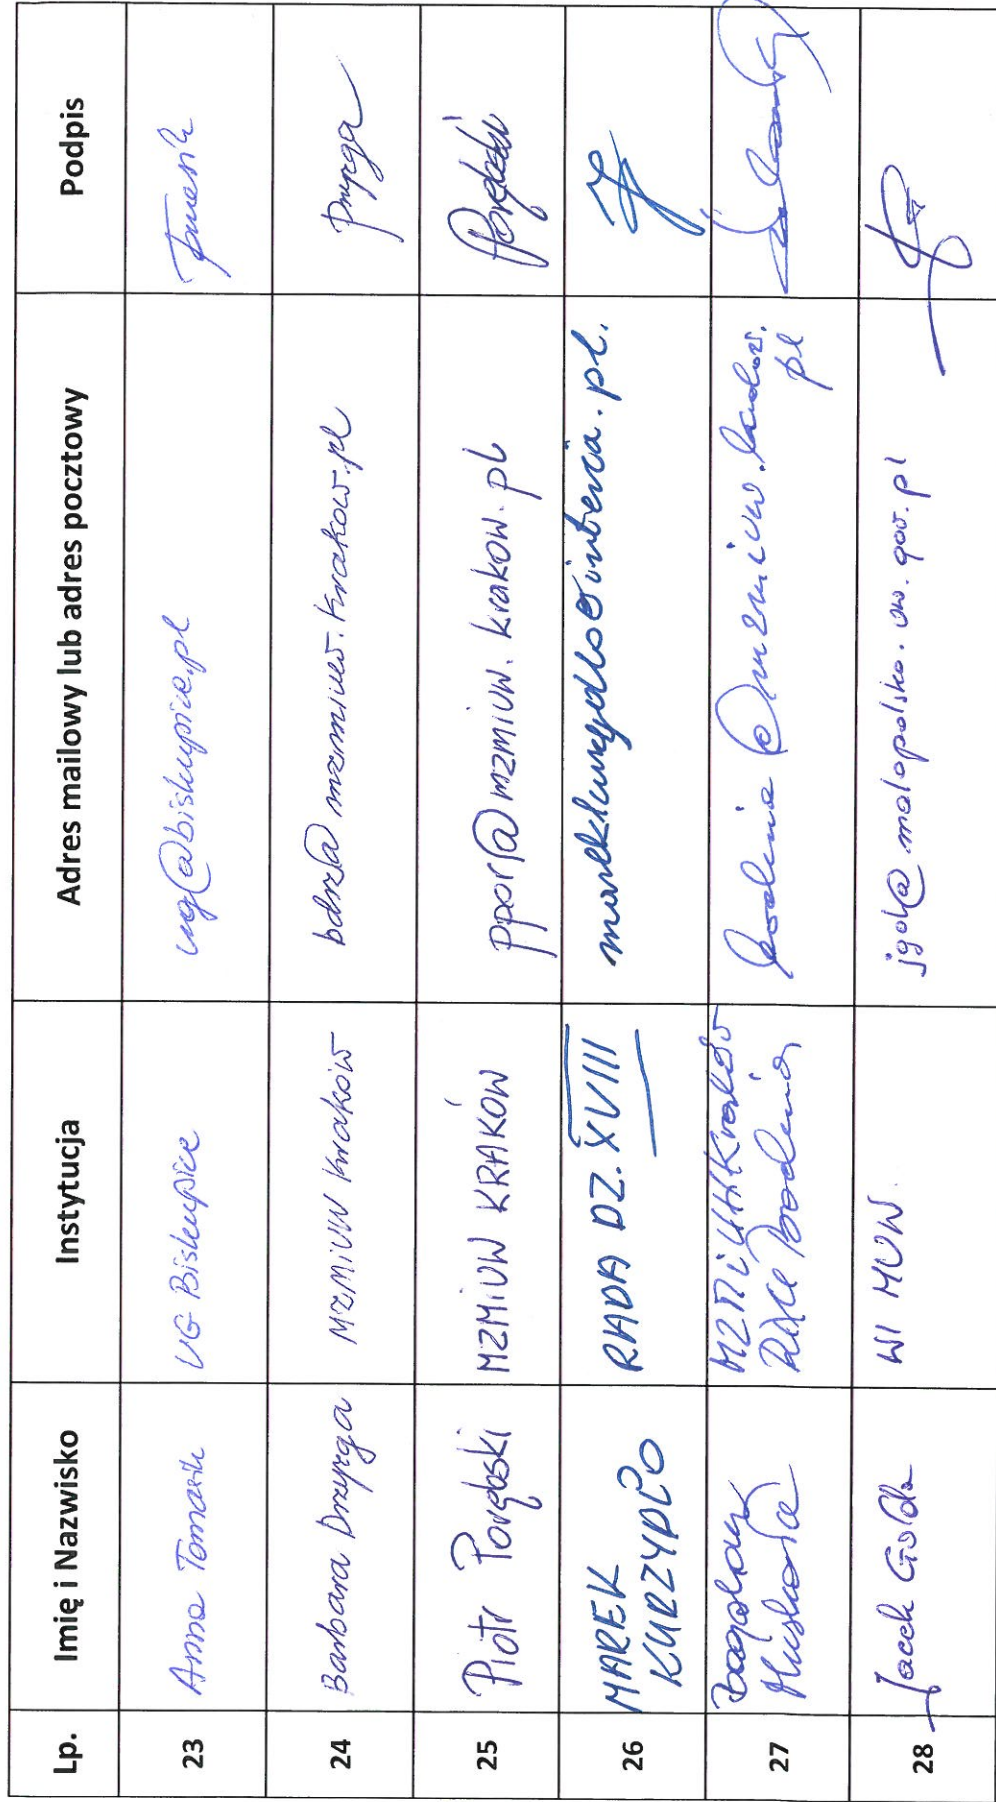 Lp. Imię i Nazwisko Instytucja Adres mailowy lub adres pocztowy Podpis
23 Anna Tomasik UG Biskupice ug@biskupice.pl Tomasik
24 Barbara Drzyzga MZMiUW Kraków bdrz@mzmiuw.krakow.pl
25 Piotr Porębski MZMiUW KRAKÓW ppor@mzmiuw.krakow.pl Porębski
26 MAREK KURZYDŁO RADA DZ. XVIII marekkurzydlo@interia.pl.
27 MZMiUW Kraków @mzmiuw.krakow.pl
28 Jacek Golda WI MUW jgol@malopolska.uw.gov.pl